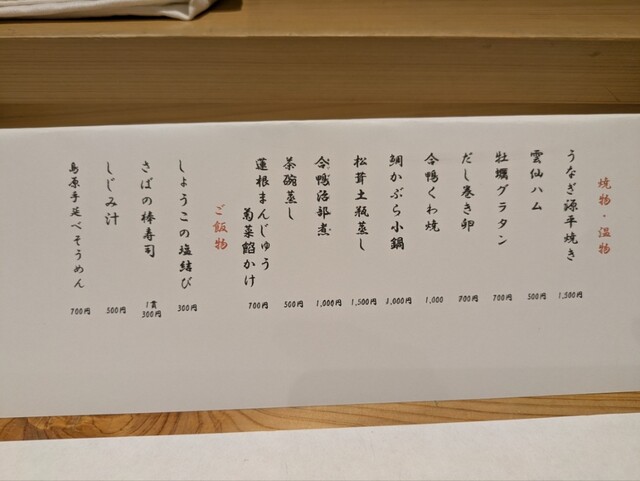 焼物・温物
うなぎ源平焼き 1,500円
雲仙ハム 500円
牡蠣グラタン 700円
だし巻き卵 700円
合鴨くわ焼 1,000
鯛かぶら小鍋 1,000円
松茸土瓶蒸し 1,500円
合鴨治部煮 1,000円
茶碗蒸し 500円
蓮根まんじゅう
菊菜餡かけ 700円
ご飯物
しょうこの塩結び 300円
さばの棒寿司 1貫 300円
しじみ汁 500円
島原手延べそうめん 700円